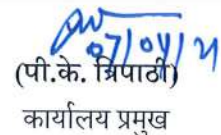 07/04/21
(पी.के. त्रिपाठी)
कार्यालय प्रमुख